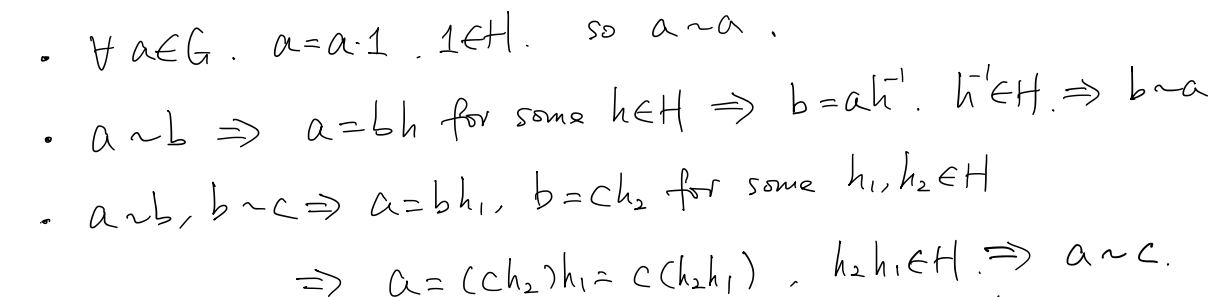 · ∀ a∈G. a=a·1. 1∈H. so a~a.
· a~b ⇒ a=bh for some h∈H ⇒ b=ah⁻¹. h⁻¹∈H. ⇒ b~a
· a~b, b~c ⇒ a=bh₁, b=ch₂ for some h₁,h₂∈H
⇒ a=(ch₂)h₁=c(h₂h₁). h₂h₁∈H. ⇒ a~c.